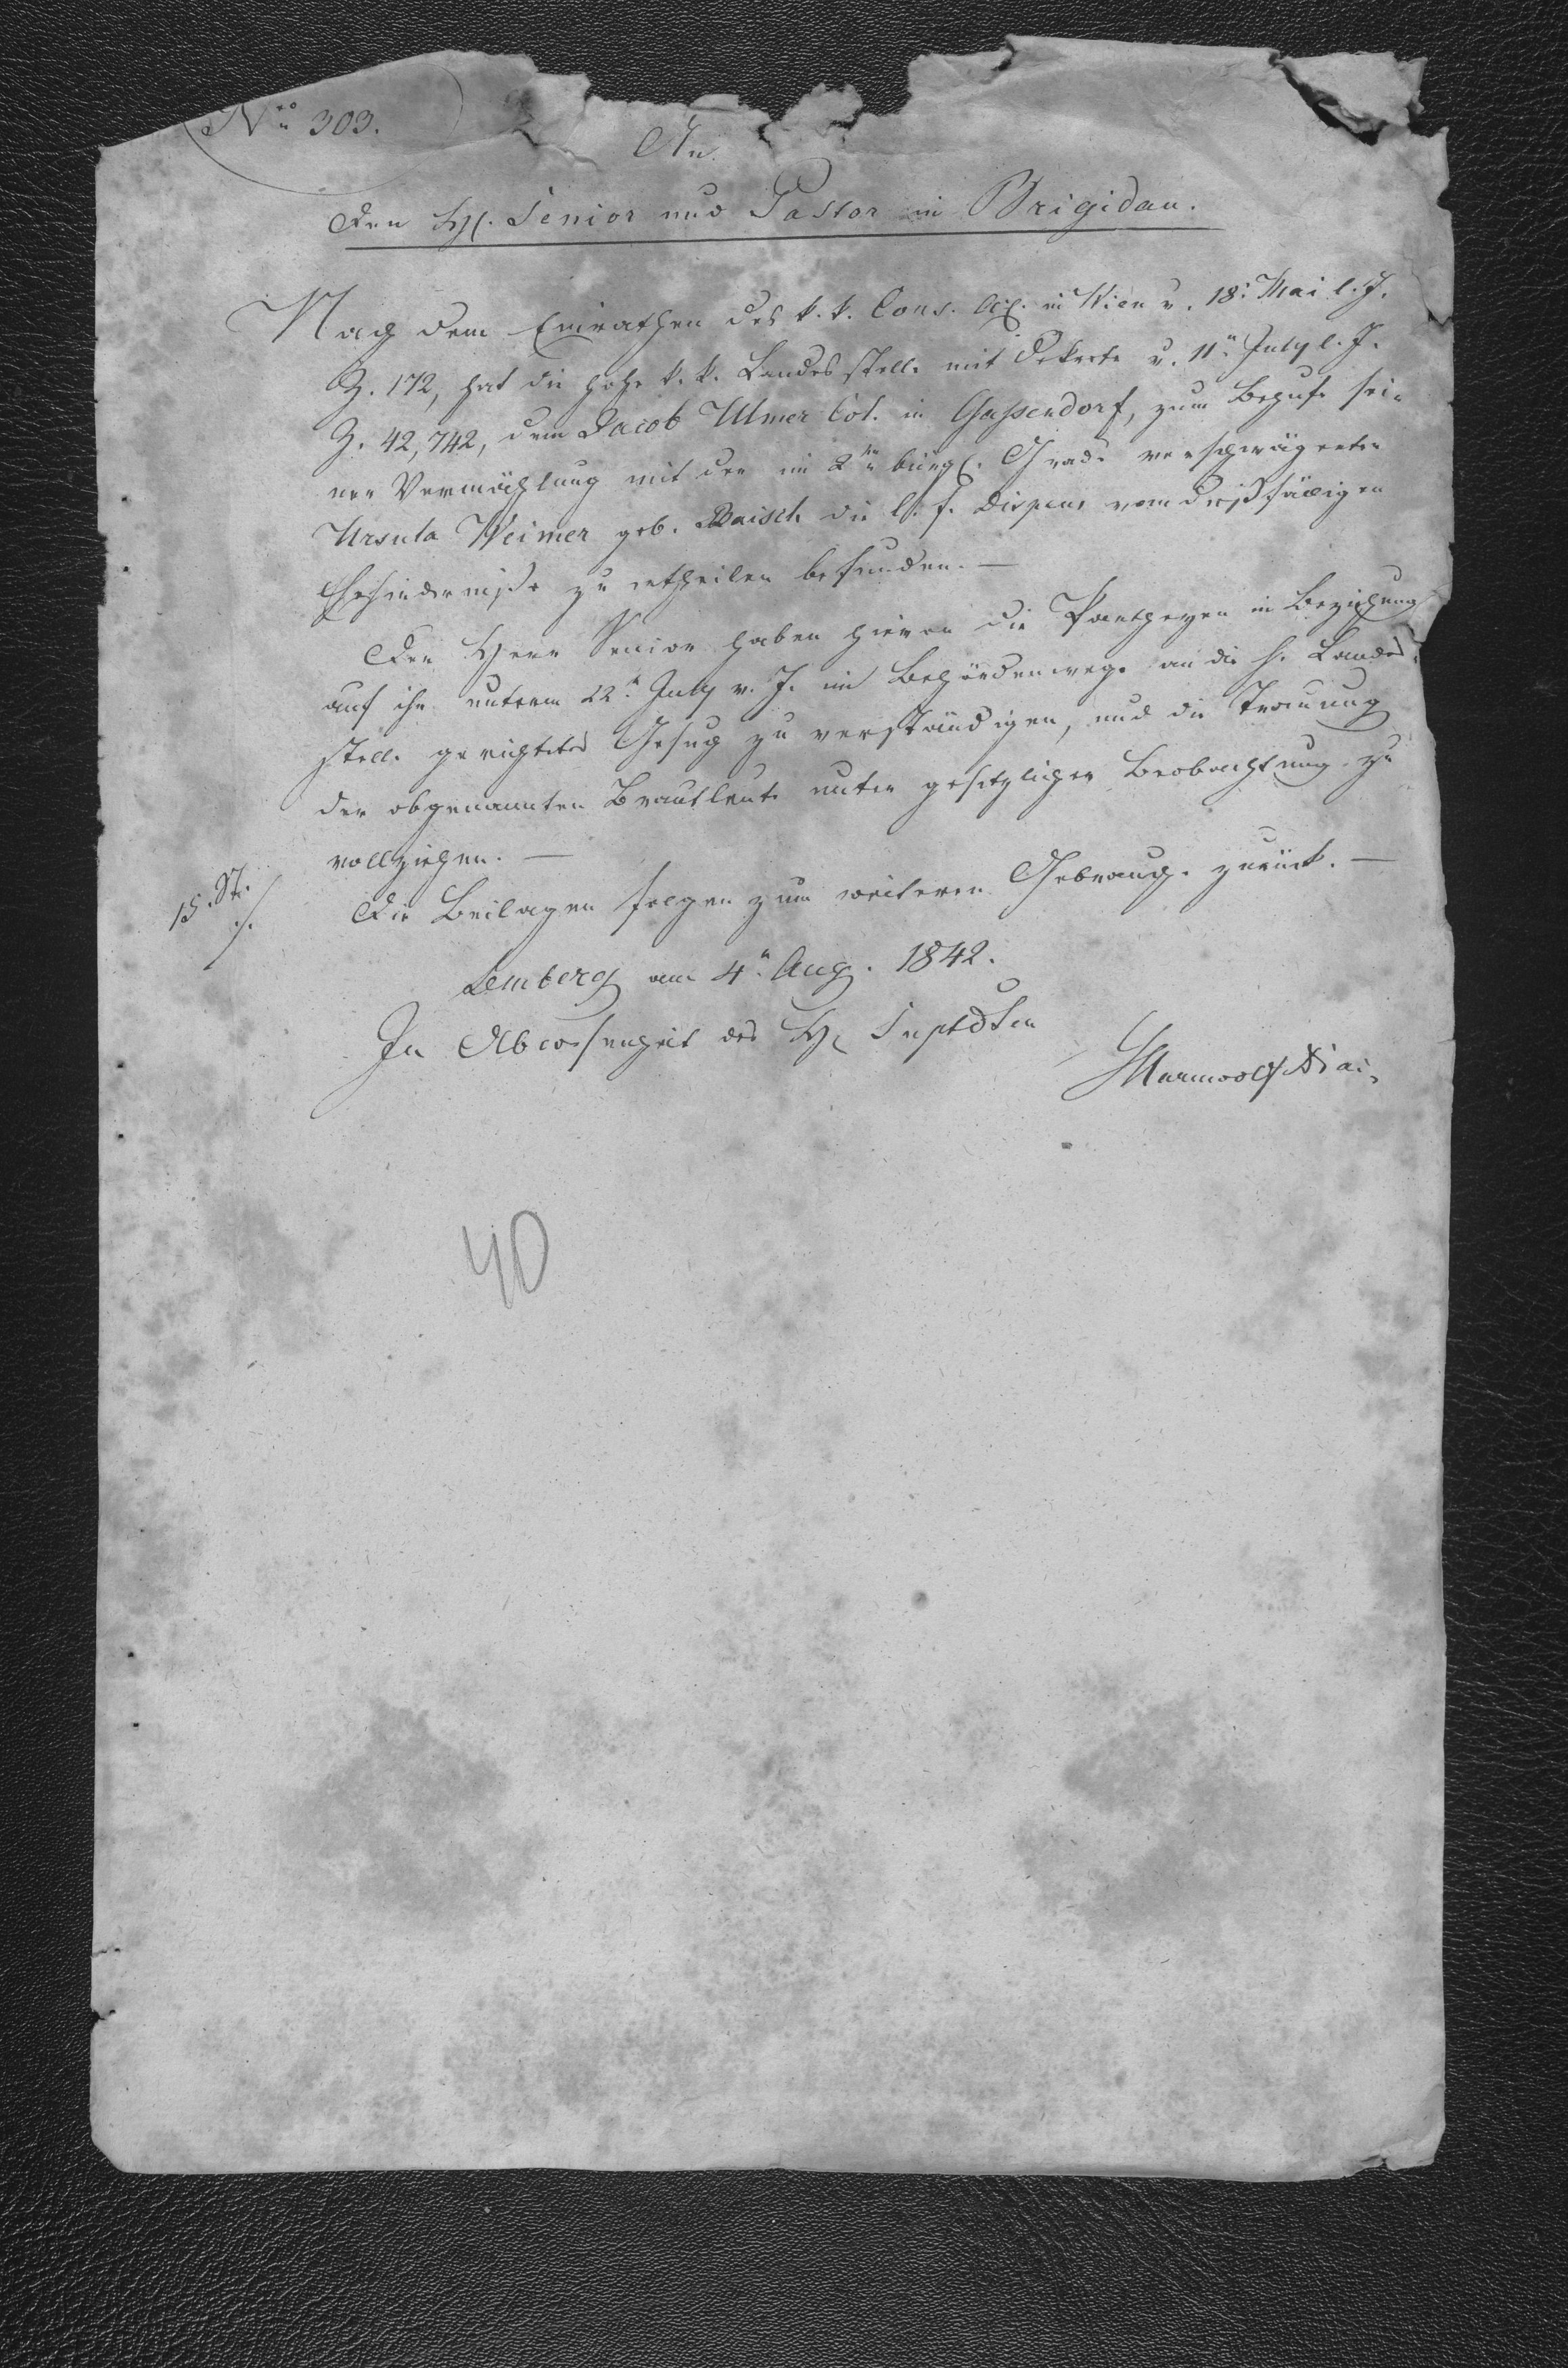 Nro 303.
An
den H. Senior und Pastor in Brigidau.
Nach dem Einrathen des k. k. Cons. A. C. in Wien v. 18. Mai l. J.
Z. 172, hat die hohe k. k. Landesstelle mit Dekrete v. 11n July l. J.
Z. 42,742, dem Jacob Ulmer Col. in Gassendorf, zum Behufe sei-
ner Vermählung mit der im 2ten bürgl. Grade verschwägerten
Ursula Weimer geb. Baisch die l. f. Dispens vom dießfälligen
Ehehindernisse zu ertheilen befunden. —
Der Herr Senior haben hievon die Partheyen in Beziehung
auf ihr unterm 22n July v. J. im Behördenwege an die h. Landes-
stelle gerichtetes Gesuch zu verständigen, und die Trauung
der obgenannten Brautleute unter gesetzlicher Beobachtung zu
vollziehen. —
15. St. ./.
Die Beilagen folgen zum weiteren Gebrauche zurück. —
Lemberg am 4n Aug. 1842.
In Abwesenheit des H. Suptdten
40